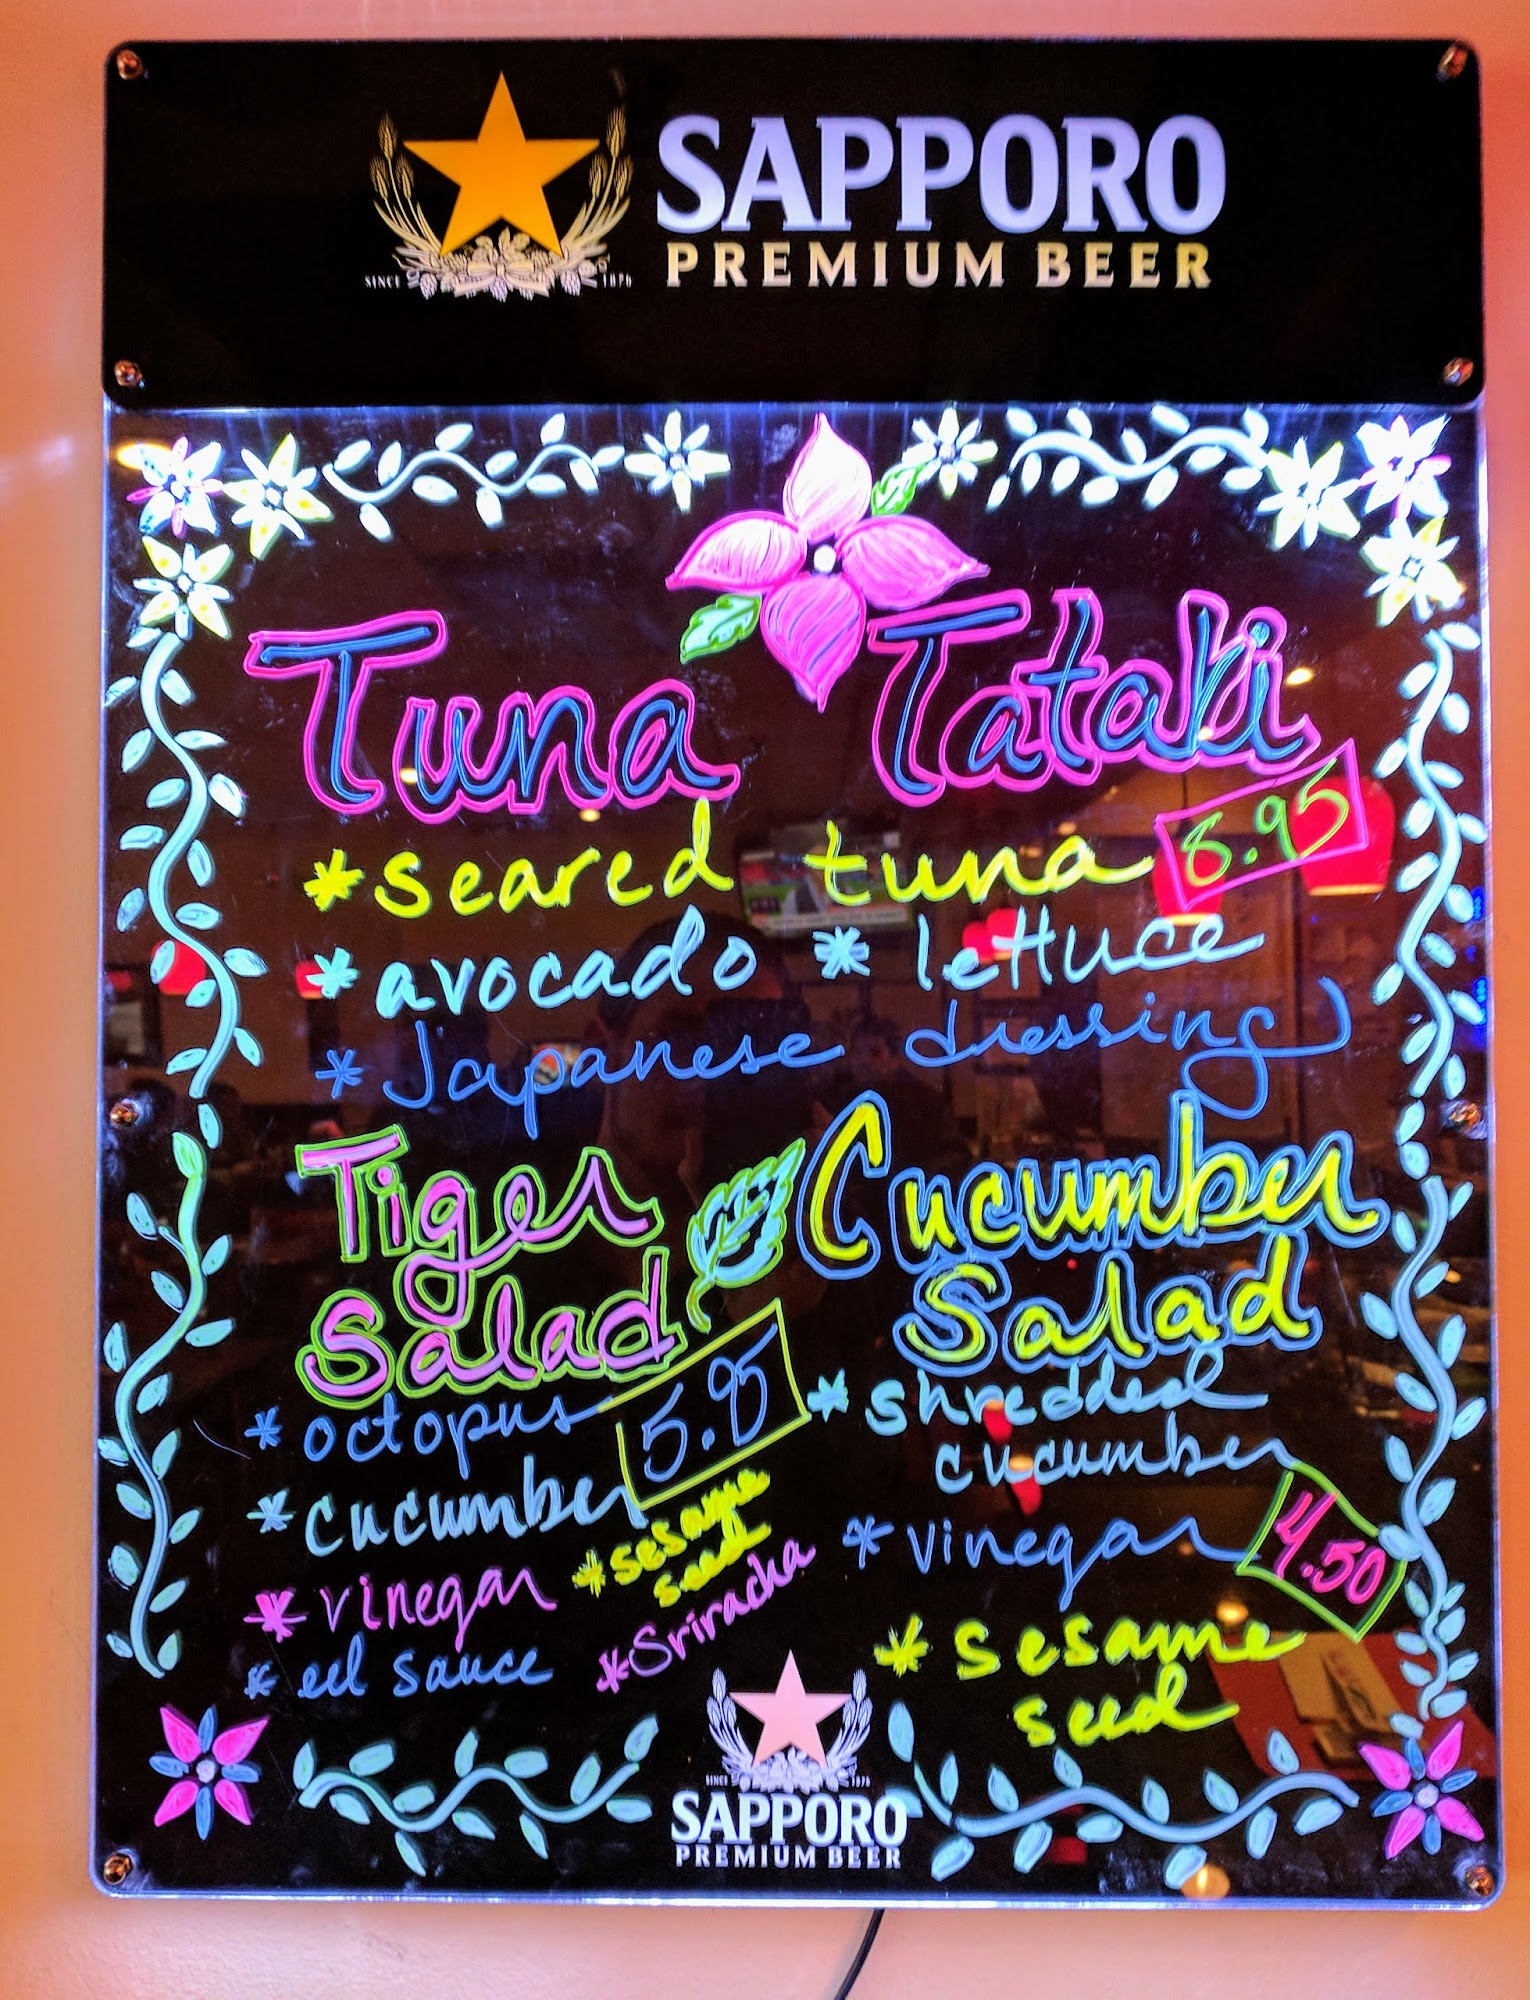 SAPPORO
PREMIUM BEER
SINCE 1876
Tuna Tataki
*seared tuna 8.95
*avocado *lettuce
*Japanese dressing
Tiger
Salad
5.95
*octopus
*cucumber
*vinegar
*sesame
seed
*eel sauce
*Sriracha
Cucumber
Salad
*shredded
cucumber
*vinegar 4.50
*sesame
seed
SINCE 1876
SAPPORO
PREMIUM BEER